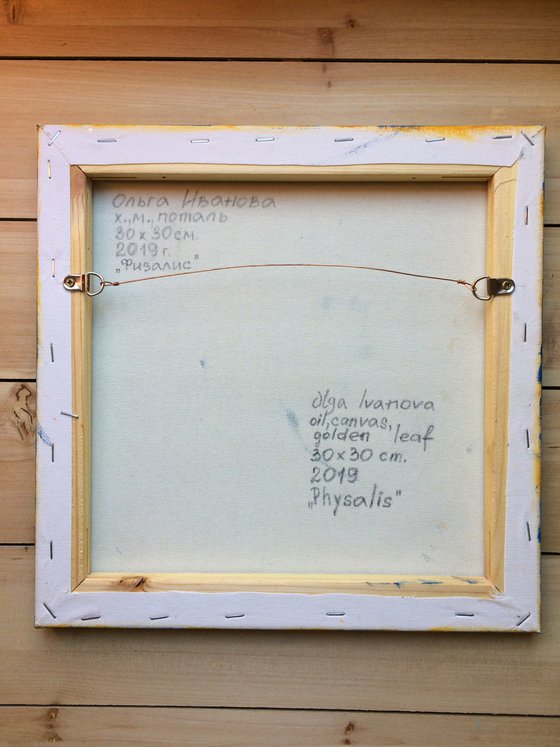 Ольга Иванова
х., м., поталь
30 x 30 см.
2019 г.
„Физалис"
Olga Ivanova
oil, canvas,
golden leaf
30 x 30 cm.
2019
„Physalis"